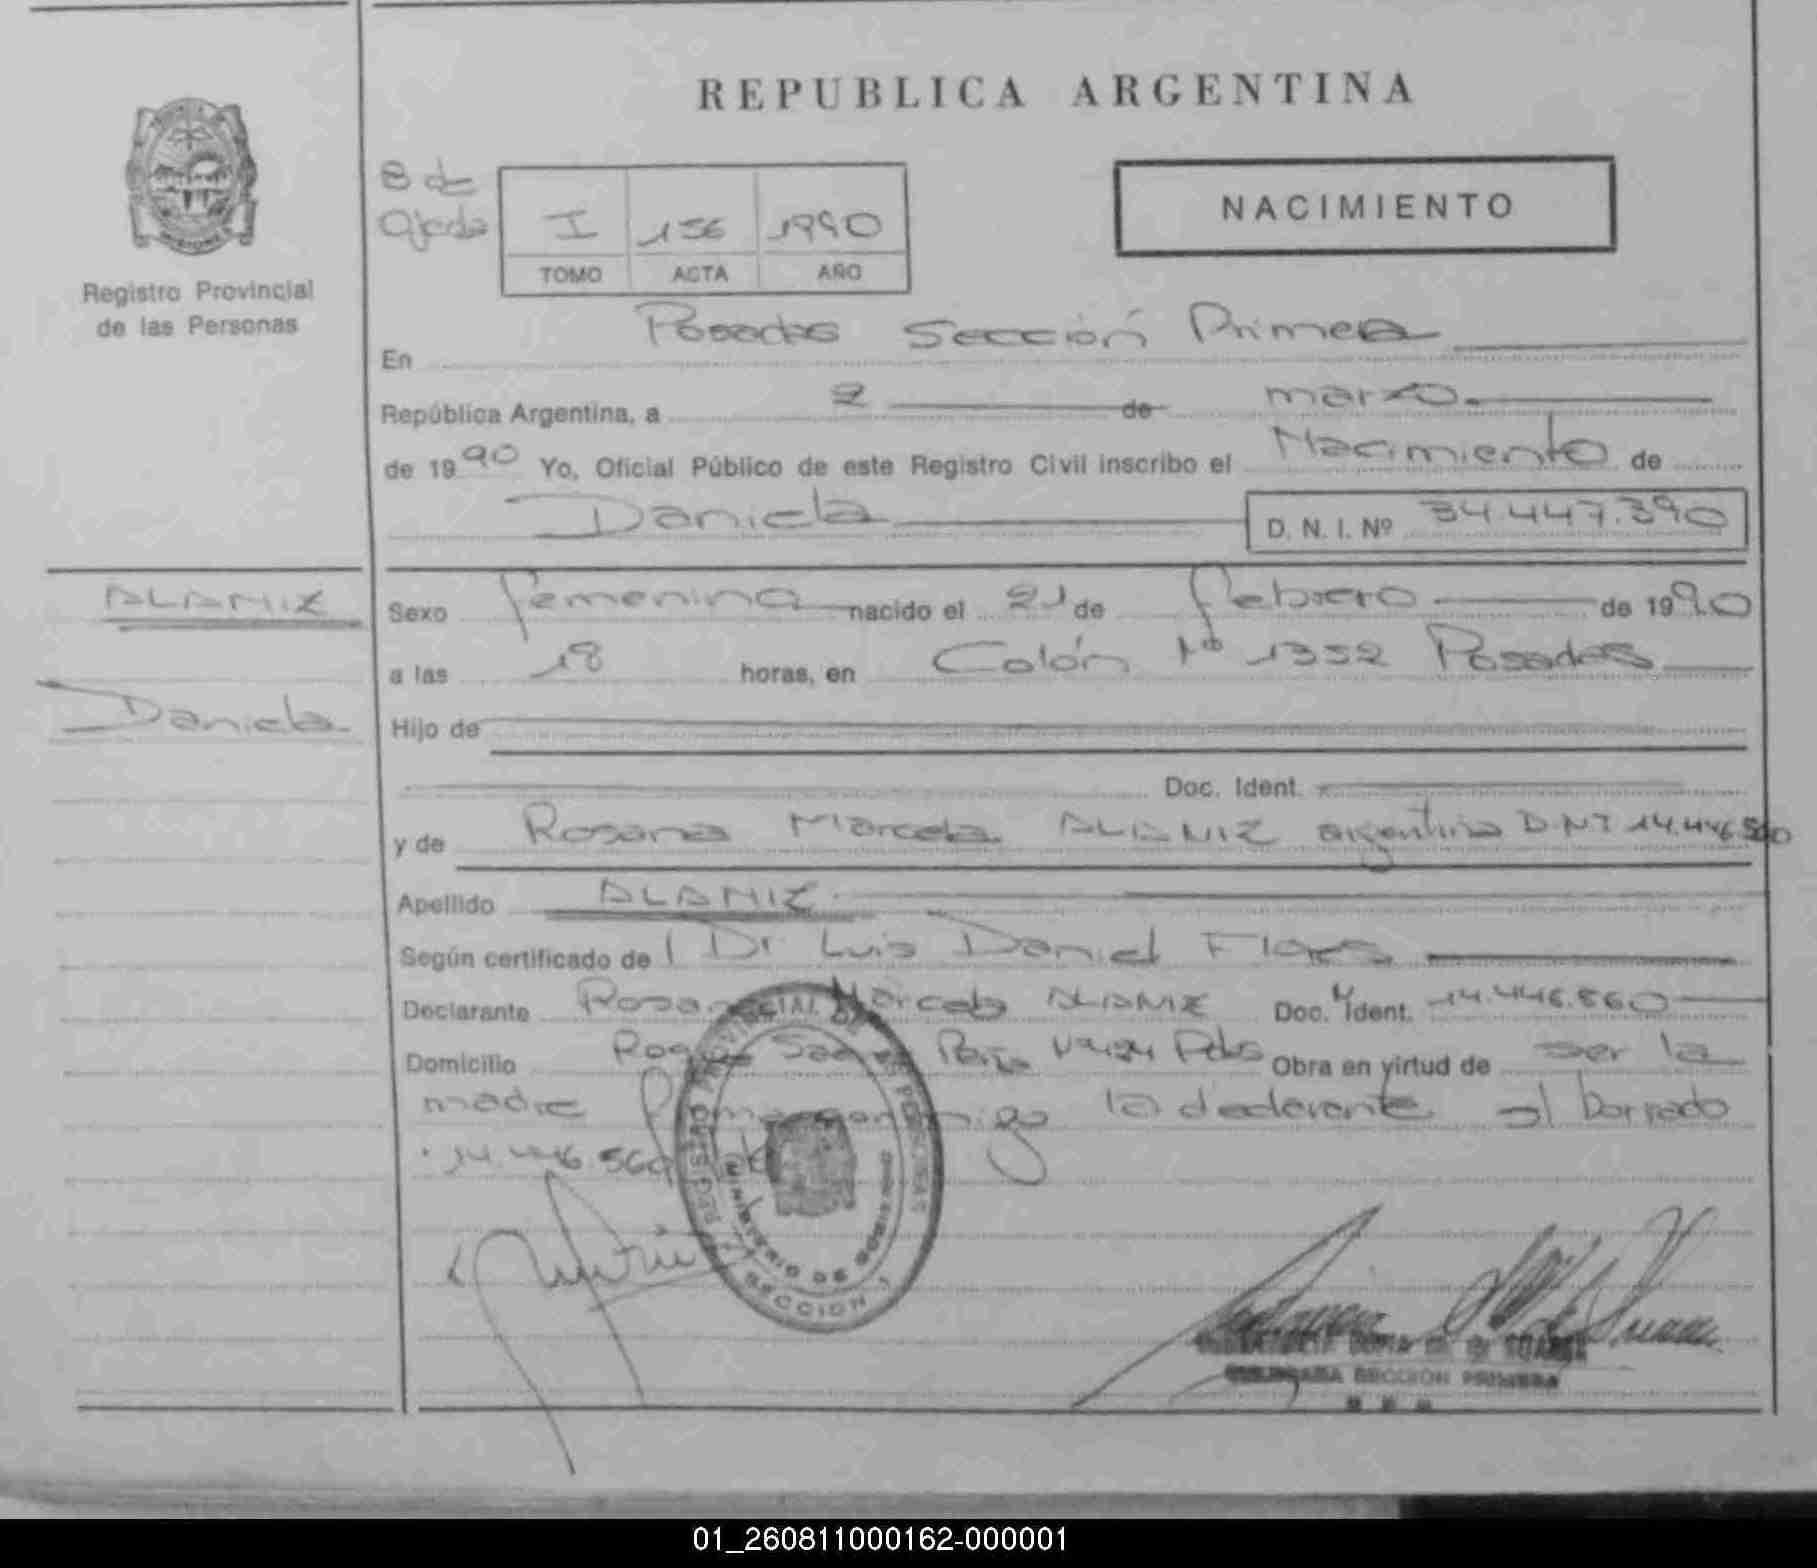 REPUBLICA ARGENTINA
B de
Ojeda
I 156 1990
TOMO ACTA AÑO
NACIMIENTO
Registro Provincial
de las Personas
En Posadas Sección Primera
República Argentina, a 2 de marzo
de 1990 Yo, Oficial Público de este Registro Civil inscribo el Nacimiento de
Daniela D. N. I. Nº 34.447.390
ALANIZ
Daniela
Sexo femenina nacido el 21 de febrero de 1990
a las 18 horas, en Colón Nº 1352 Posadas
Hijo de
Doc. Ident.
y de Rosana Marcela ALANIZ argentina D.N.I 14.446.560
Apellido ALANIZ
Según certificado de Dr Luis Daniel Flores
Declarante Rosana Marcela ALANIZ Doc. Ident. 14.446.860
Domicilio Roque Saenz Peña Pdas Obra en virtud de ser la
madre Firma conmigo la declarante al borrado
14.446.560
REGISTRO PROVINCIAL DE LAS PERSONAS
MINISTERIO DE GOBIERNO
SECCION 1
DELEGADA SECCION PRIMERA
01_260811000162-000001